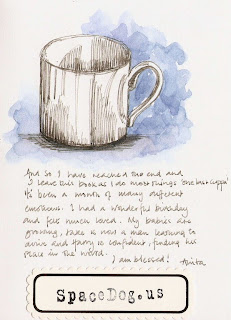 And so I have reached the end and
I leave this book as I do most things 'one last cuppa'
It's been a month of many different
emotions. I had a wonderful birthday
and felt much loved. My babies are
growing, Jake is now a man learning to
drive and Harry is confident, finding his
place in the world.
I am blessed! Anita
SpaceDog.us